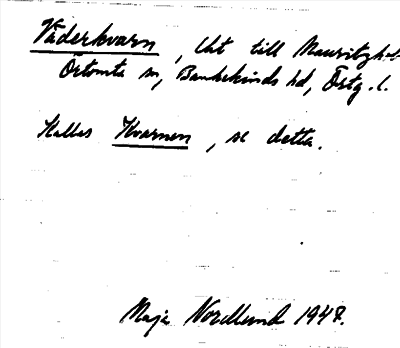 Väderkvarn, lht till Mauritzh.
Örtomta sn, Bankekinds hd, Östg. l.
Kallas Kvarnen, se detta.
Maja Nordlund 1948.